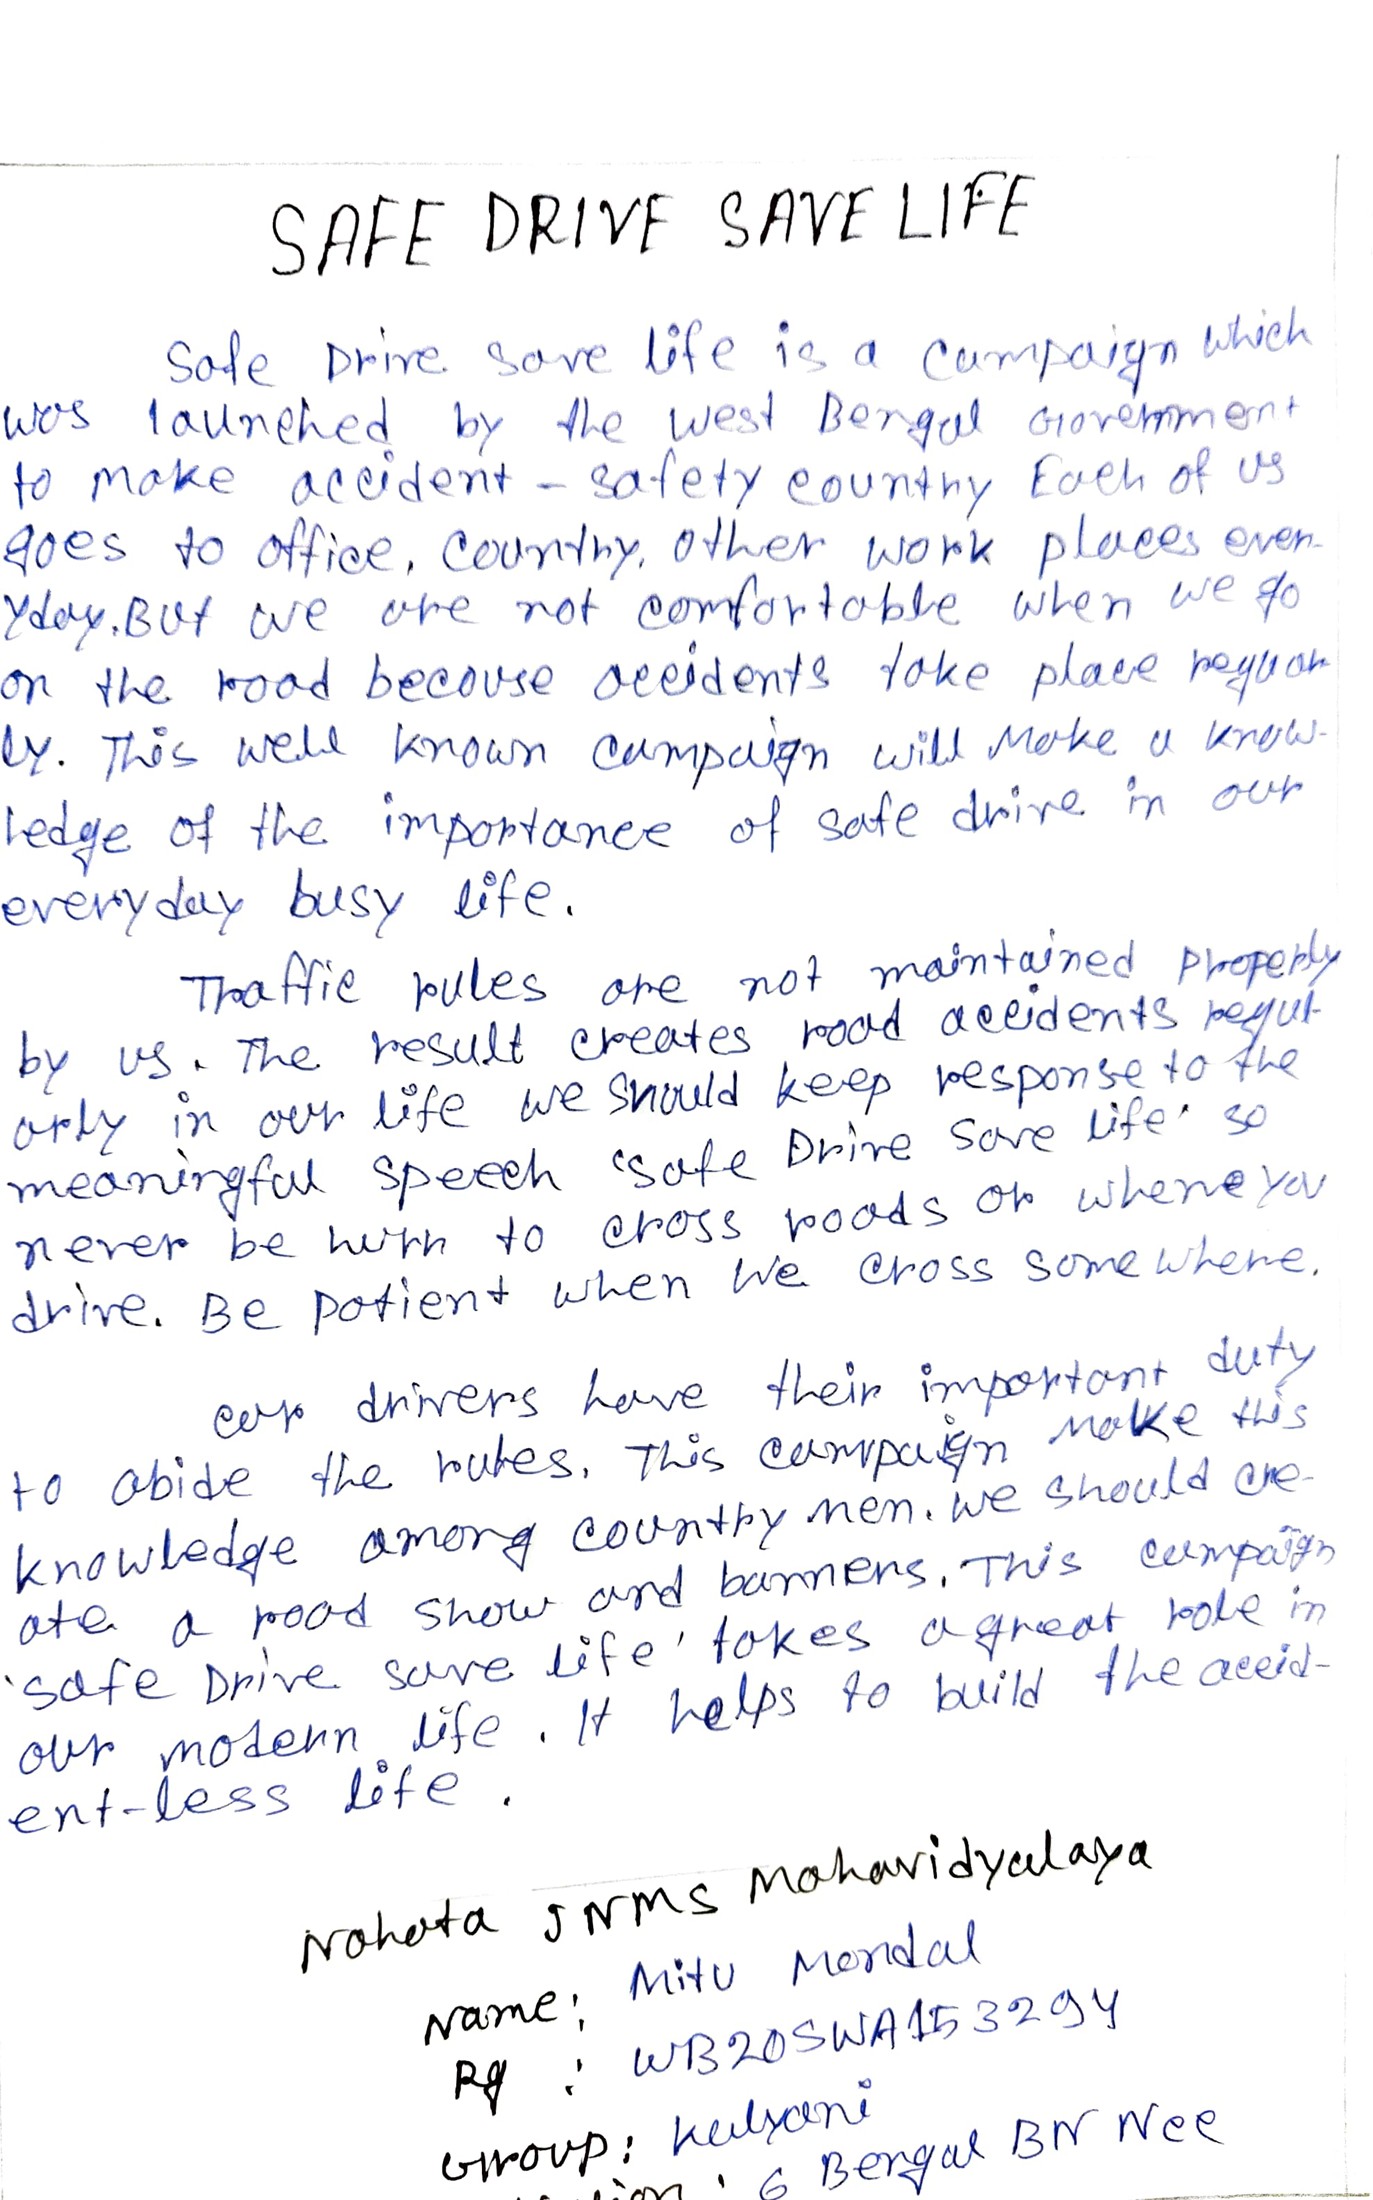 SAFE DRIVE SAVE LIFE
Safe Drive save life is a campaign which
was launched by the west Bengal Government
to make accident - safety country Each of us
goes to office, country, other work places ever-
yday. But we are not comfortable when we go
on the road because accidents take place reguar
ly. This well known campaign will Make a know-
ledge of the importance of safe drive in our
everyday busy life.
Traffic rules are not maintained properly
by us. The result creates road accidents regul-
arly in our life we should keep response to the
meaningful speech 'safe Drive save life' so
never be hurh to cross roads or where you
drive. Be patient when we cross somewhere.
car drivers have their important duty
to abide the rules. This campaign Make this
knowledge among country men. we should cre-
ate a road show and banners. This campaign
'safe Drive save life' takes a great role in
our modern life. It helps to build the accid-
ent-less life.
Nahata JNMS Mahavidyalaya
Name: Mitu Mondal
Rg : WB20SWA153294
Group: Kalyani
6 Bengal BN Ncc